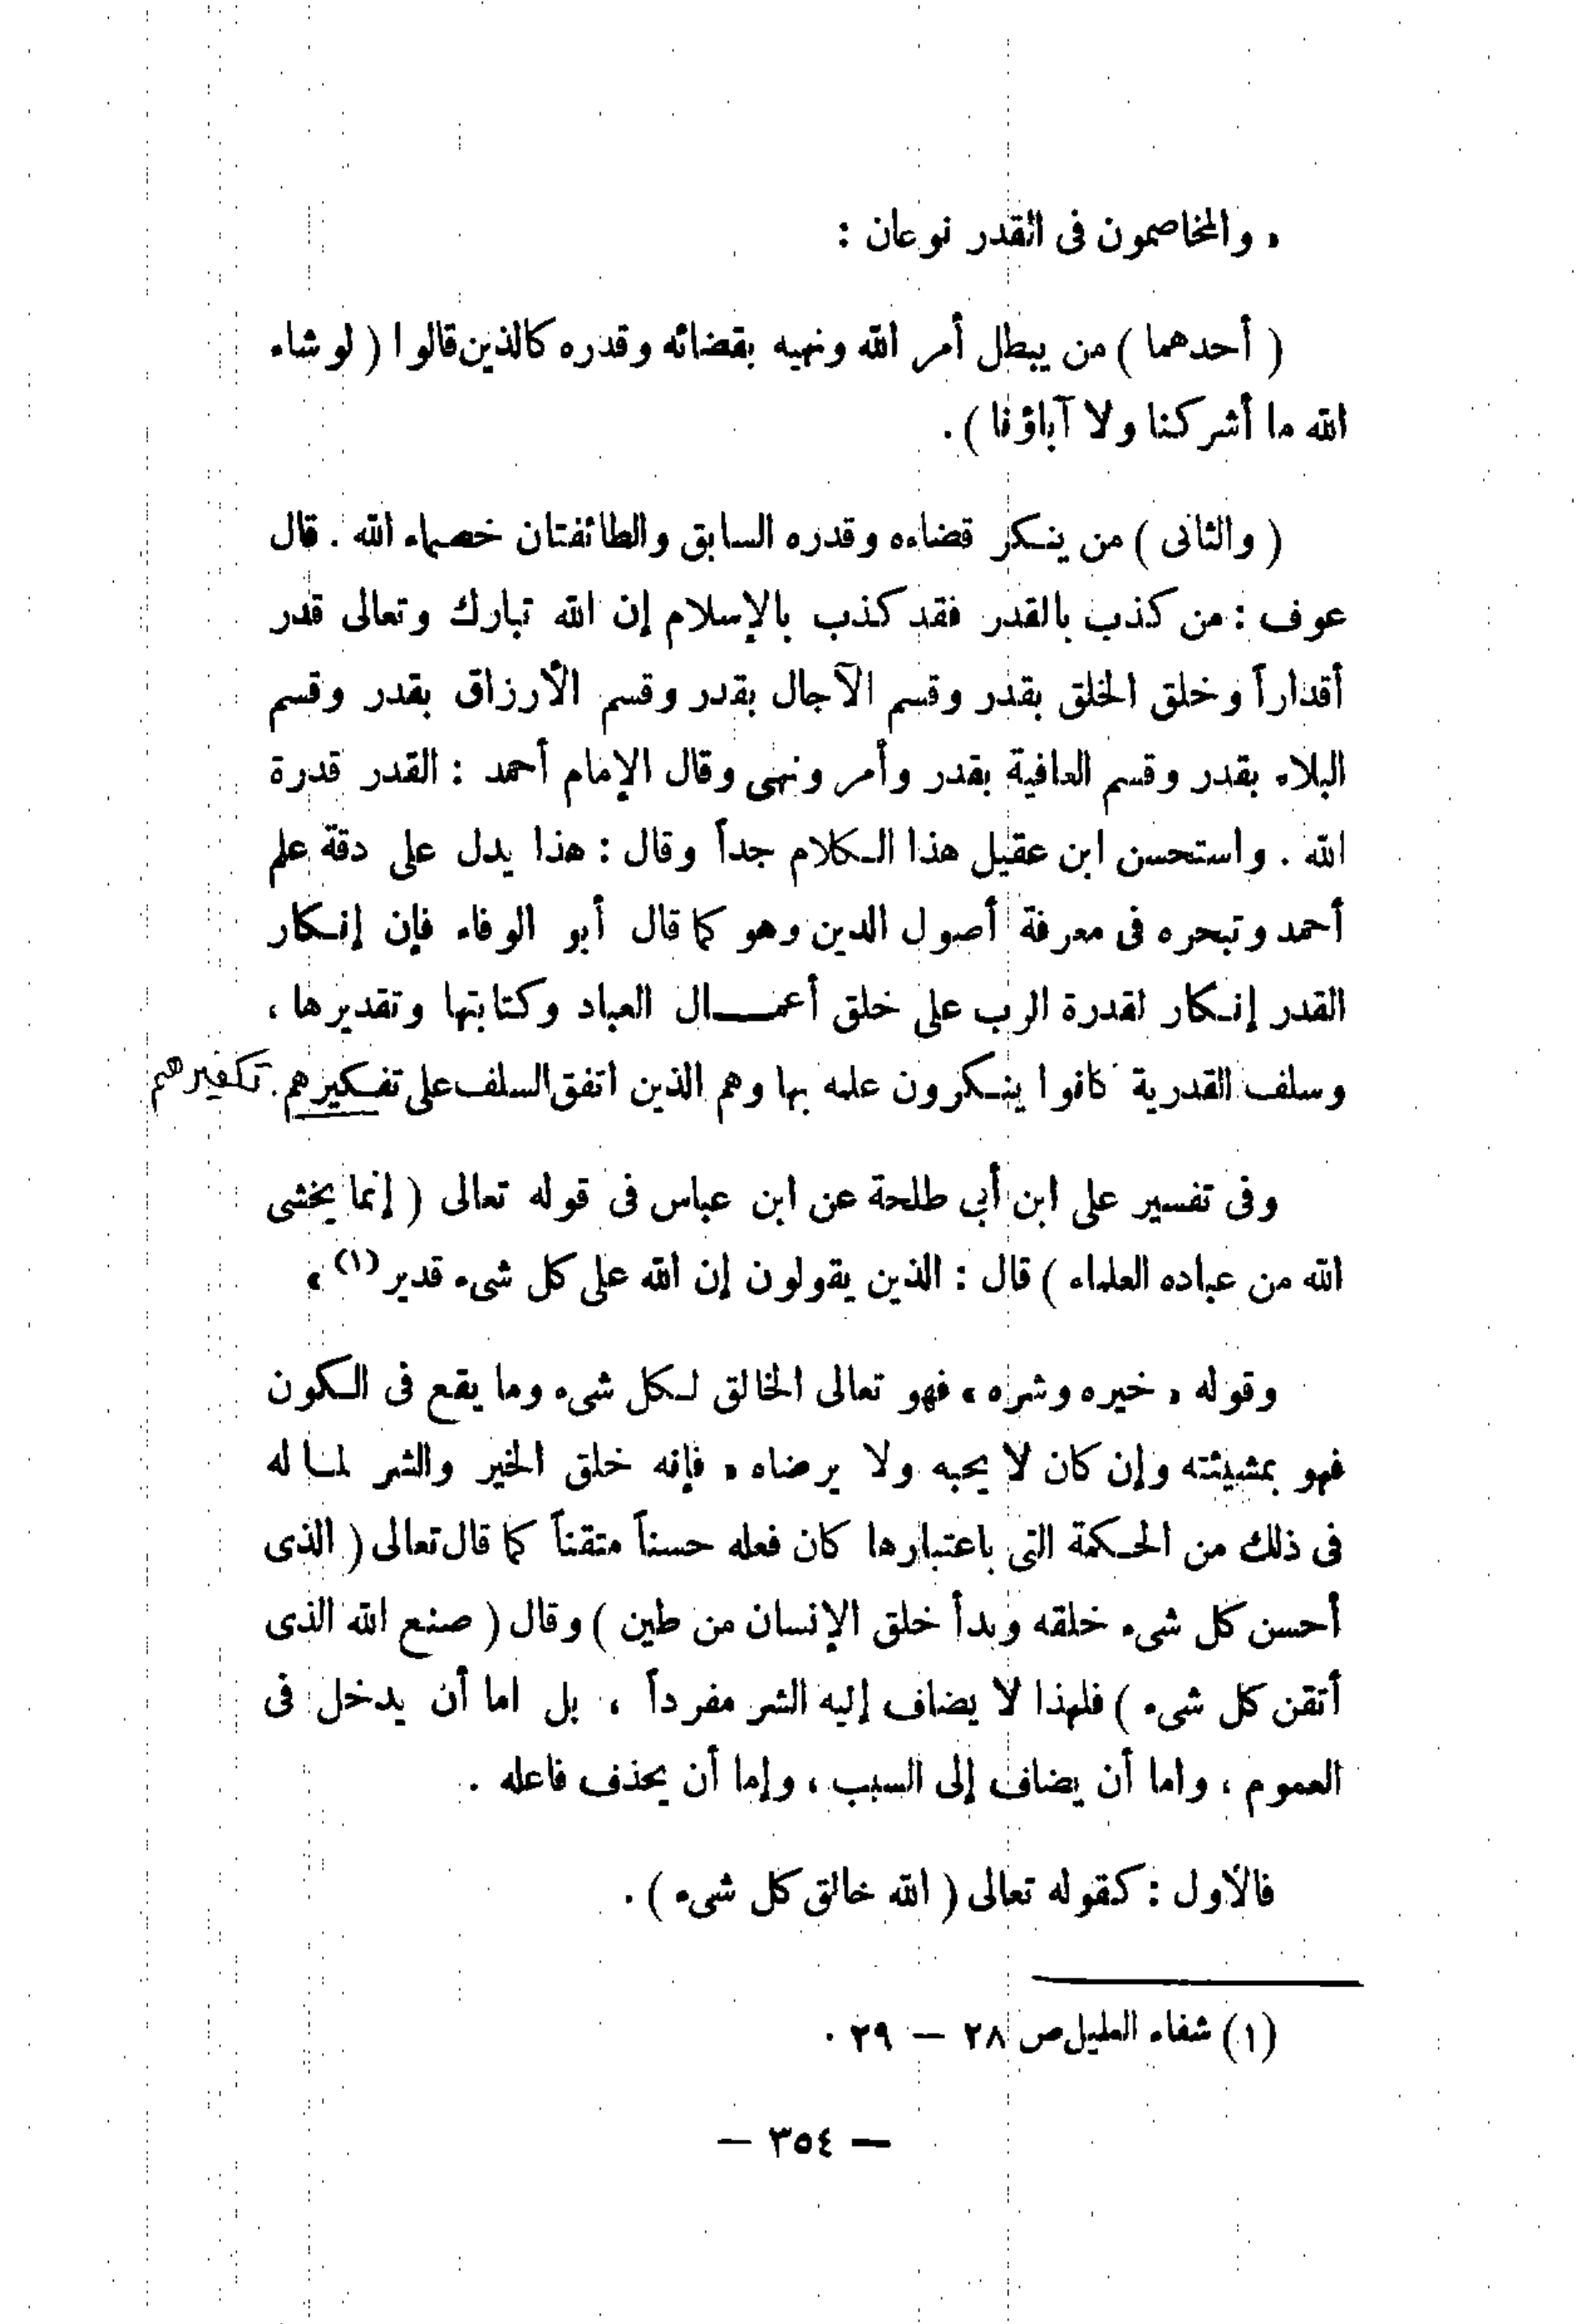 « والمخاصمون فى القدر نوعان :
( أحدهما ) من يبطل أمر الله ونهيه بقضائه وقدره كالذين قالوا ( لو شاء
الله ما أشركنا ولا آباؤنا ) .
( والثانى ) من ينكر قضاءه وقدره السابق والطائفتان خصماء الله . قال
عوف : من كذب بالقدر فقد كذب بالإسلام إن الله تبارك وتعالى قدر
أقداراً وخلق الخلق بقدر وقسم الآجال بقدر وقسم الأرزاق بقدر وقسم
البلاء بقدر وقسم العافية بقدر وأمر ونهى وقال الإمام أحمد : القدر قدرة
الله . واستحسن ابن عقيل هذا الكلام جداً وقال : هذا يدل على دقة علم
أحمد وتبحره فى معرفة أصول الدين وهو كما قال أبو الوفاء فإن إنكار
القدر إنكار لقدرة الرب على خلق أعمال العباد وكتابتها وتقديرها ،
وسلف القدرية كانوا ينكرون علمه بها وهم الذين اتفق السلف على تفكيرهم . تكفيرهم
وفى تفسير على ابن أبي طلحة عن ابن عباس فى قوله تعالى ( إنما يخشى
الله من عباده العلماء ) قال : الذين يقولون إن الله على كل شىء قدير (١) »
وقوله « خيره وشره » فهو تعالى الخالق لكل شىء وما يقع فى الكون
فهو بمشيئته وإن كان لا يحبه ولا يرضاه « فإنه خلق الخير والشر لما له
فى ذلك من الحكمة التى باعتبارها كان فعله حسناً متقناً كما قال تعالى ( الذى
أحسن كل شىء خلقه وبدأ خلق الإنسان من طين ) وقال ( صنع الله الذى
أتقن كل شىء ) فلهذا لا يضاف إليه الشر مفرداً ، بل اما أن يدخل فى
العموم ، واما أن يضاف إلى السبب ، وإما أن يحذف فاعله .
فالأول : كقوله تعالى ( الله خالق كل شىء ) .
(١) شفاء العليل ص ٢٨ – ٢٩ .
– ٣٥٤ –